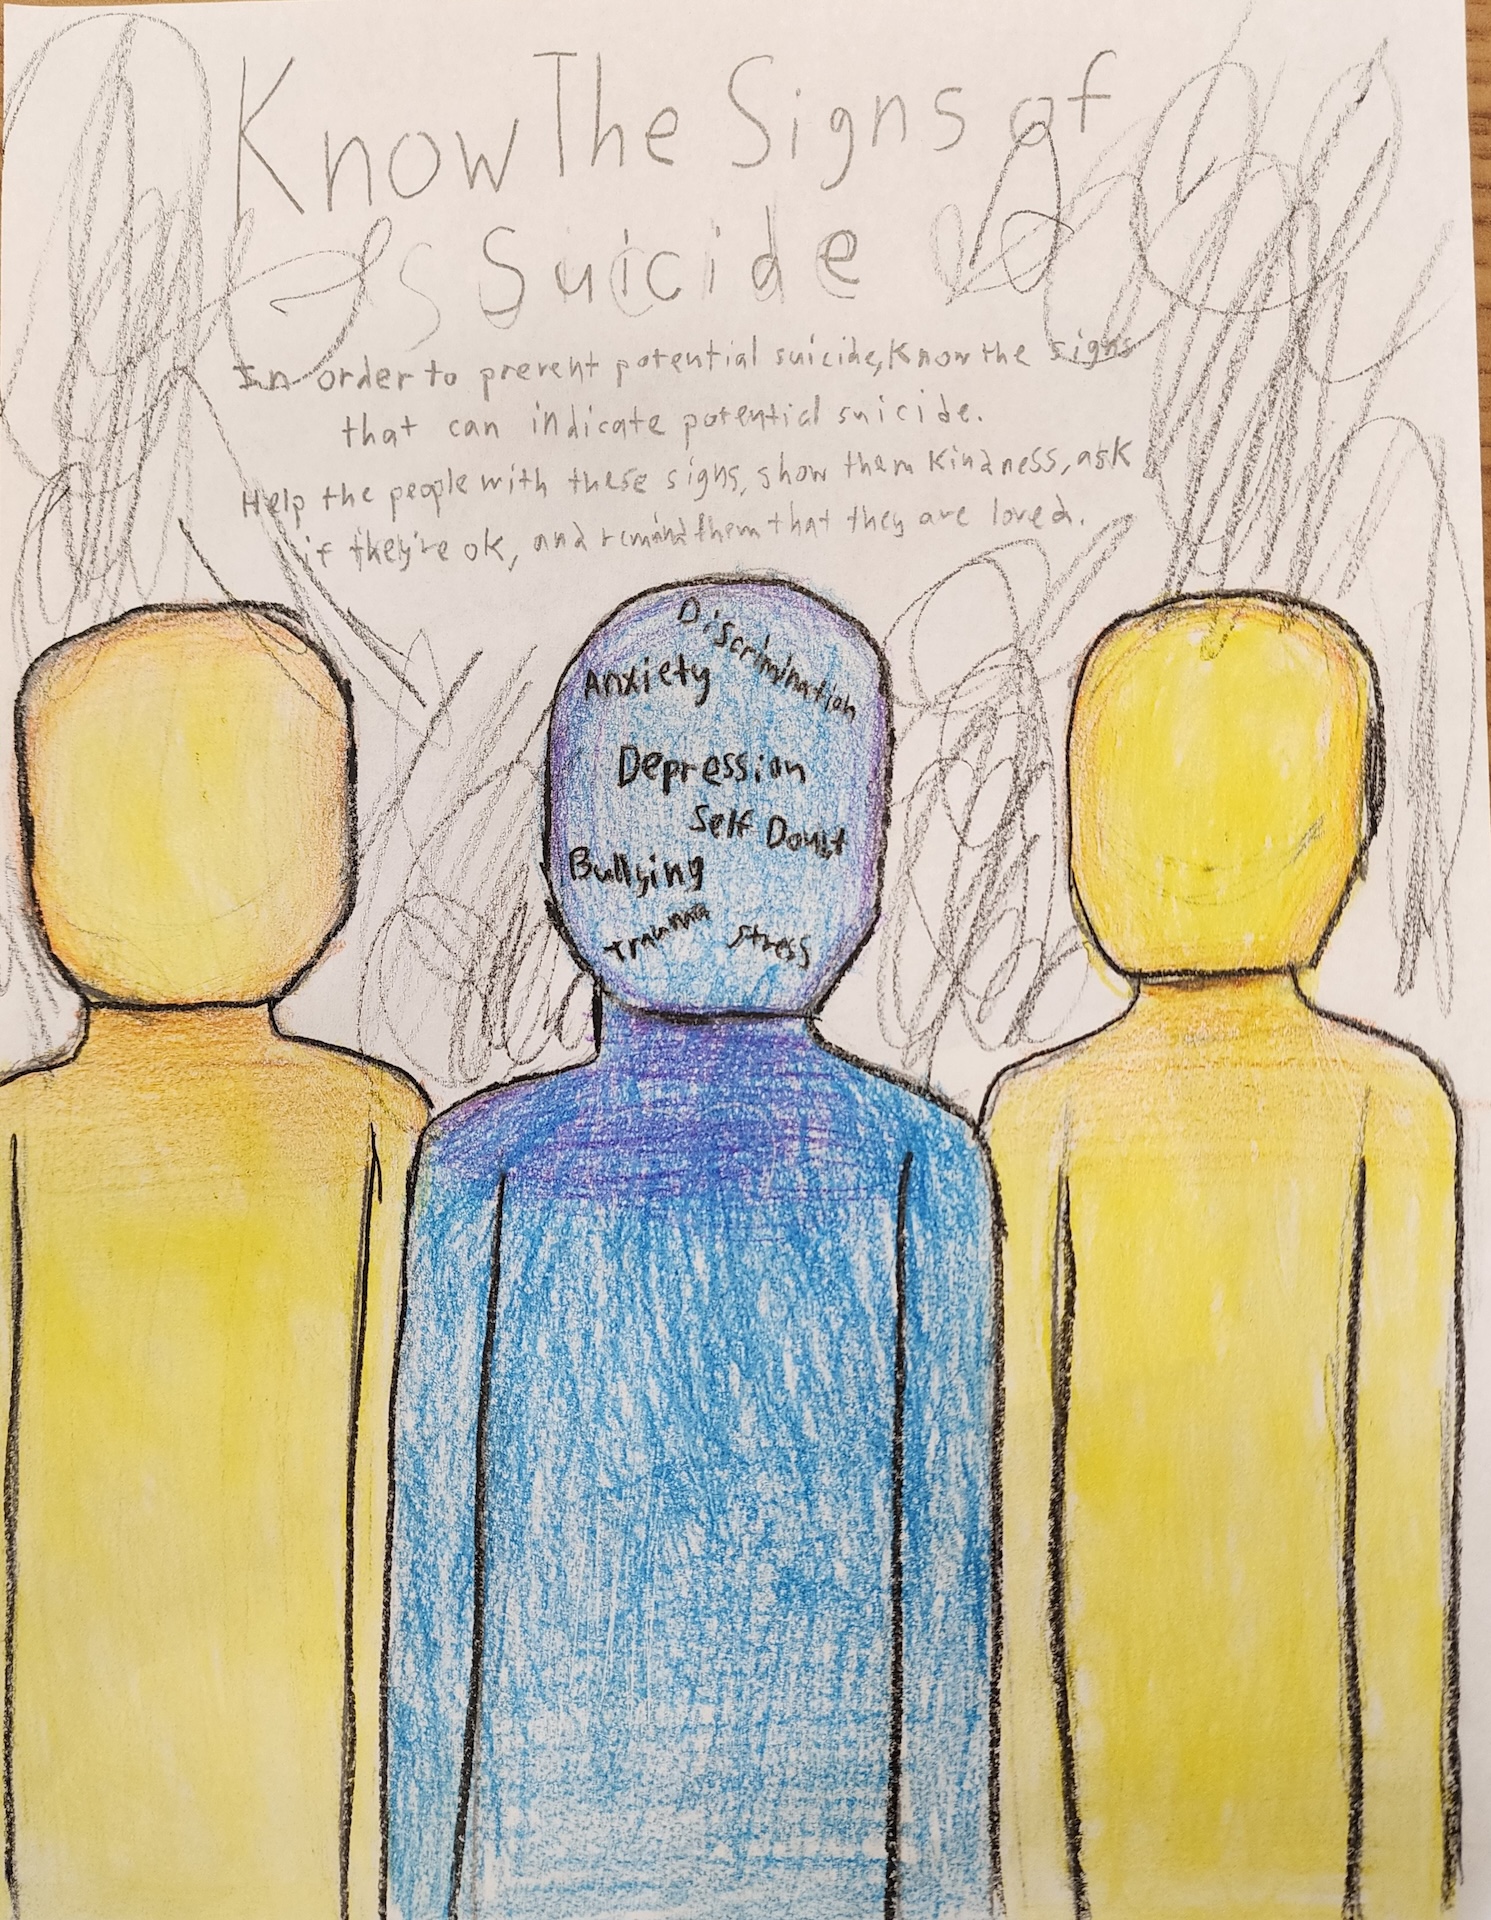 Know The Signs of
Suicide
In order to prevent potential suicide, Know the signs
that can indicate potential suicide.
Help the people with these signs, show them kindness, ask
if they're ok, and remind them that they are loved.
Discrimination
Anxiety
Depression
Self Doubt
Bullying
Trauma
Stress